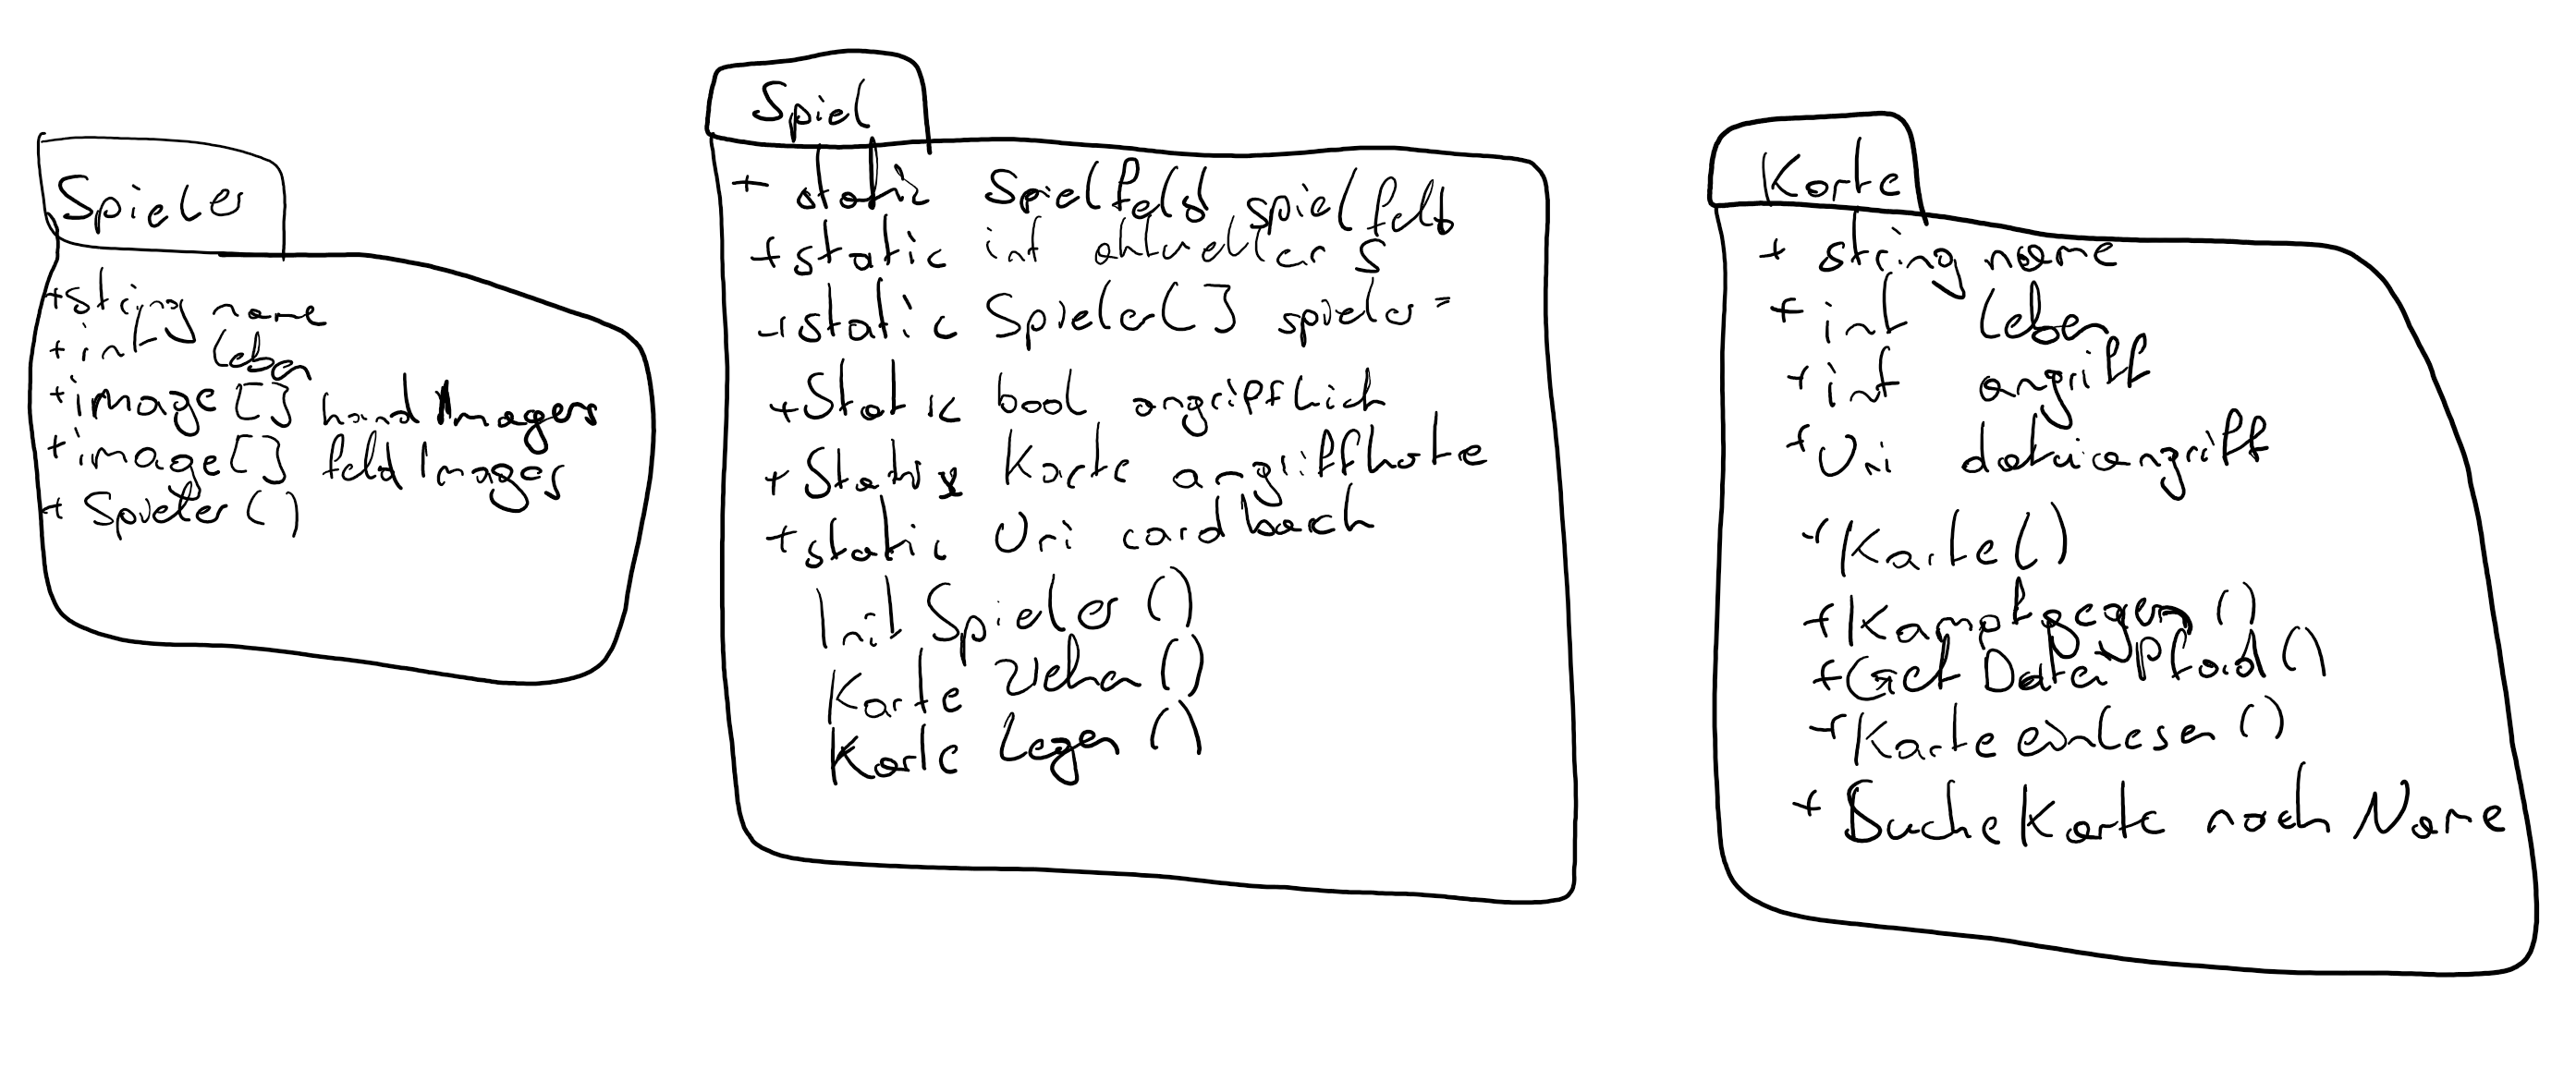 Spieler
+string name
+int leben
+image[] hand Images
+image[] feld Images
+ Spieler()
Spiel
+ static Spielfeld spielfeld
+static int aktueller S
+static Spieler[] spieler =
+Static bool angriffklick
+Static Karte angriffkarte
+static Uri cardback
Init Spieler()
Karte ziehen()
Karte Legen()
Karte
+ string name
+ int leben
+ int angriff
+ Uri dateiangriff
+Karte()
+Kampfgegen()
+Get Datei Pfad()
+Karte einlesen()
+ Suche Karte nach Name